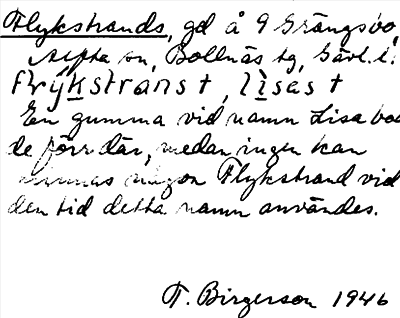 Flykstrands, gd å 9 Grängsbo,
Alfta sn, Bollnäs tg, Gävl. l.
flykstranst, lisast
En gumma vid namn Lisa bod
de förr där, medan ingen kan
minnas någon Flykstrand vid
den tid detta namn användes.
T. Birgerson 1946